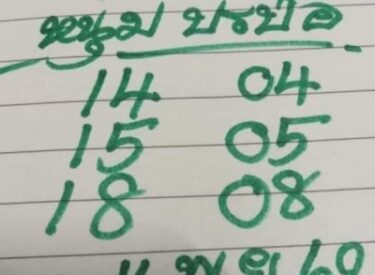 หนุ่ม บรบือ
14 04
15 05
18 08